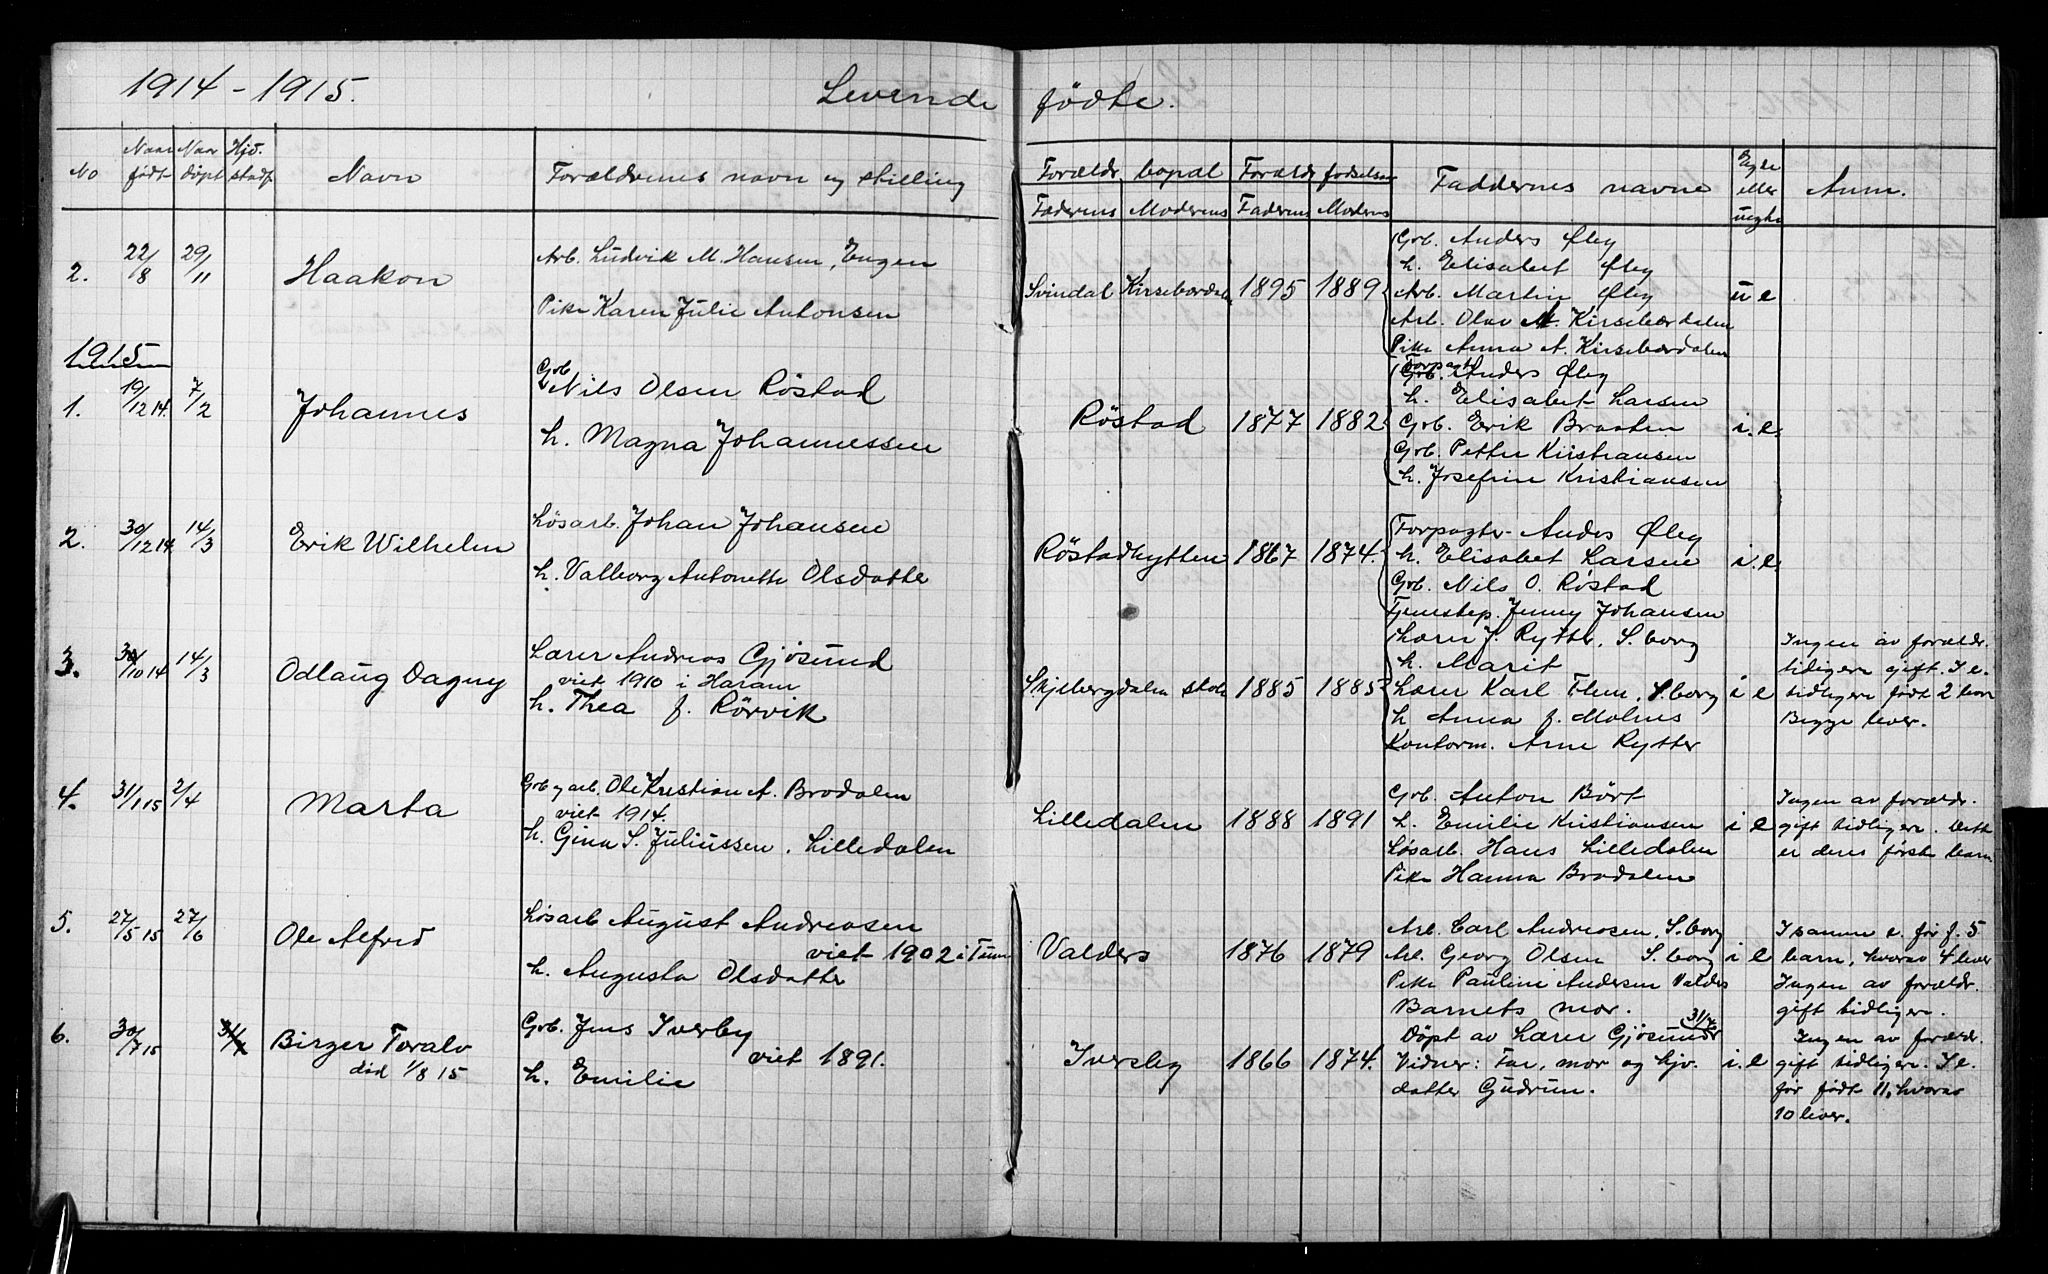 1914 - 1915. Levende fødte.
No Naar født Naar døpt Hjd. stadf. Navn Forældrenes navn og stilling Forældr. bopæl Forældr. fødselsaar Faddernes navne Egte eller uegte Anm.
Faderens Moderens Faderens Moderens
2. 22/8 29/11 Haakon
Arb. Ludvik M. Hansen, Engen
Pike Karen Julie Antonsen
Svindal Kirsebærdalen 1895 1889
Grb. Anders Øby
h. Elisabet Øby
Arb. Martin Øby
Arb. Olav M. Kirsebærdalen
Pike Anna A. Kirsebærdalen
u e
1915
1. 19/12 14. 7/2 Johannes
Grb. Nils Olsen Røstad
h. Magna Johannessen
Røstad 1877 1882
Forpagter Anders Øby
h. Elisabet Larsen
Grb. Erik Braaten
Grb. Petter Kristiansen
h. Josefine Kristiansen
i. e.
2. 30/12 14 14/3 Erik Wilhelm
Løsarb. Johan Johansen
h. Valborg Antonette Olsdatter
Røstadhytten 1867 1874.
Forpagter Anders Øby
h. Elisabet Larsen
Grb. Nils O. Røstad
Tjenestep. Jenny Johansen
i. e.
3. 30/10 14 14/3 Odlaug Dagny
Lærer Andreas Gjøsund
viet 1910 i Haram
h. Thea f. Rørvik
Skjebergdalen skole 1885 1885
Lærer J. Rytter, S.borg
h. Marit
Lærer Karl Flem, S.borg
h Anna f. Molnes
Kontorm. Arne Rytter
i e
Ingen av forældr.
tidigere gift. I e.
tidligere født 2 barn
Begge lever.
4. 31/1 15 2/4 Marta
Grb og arb. Ole Kristian A. Brodalen
viet 1914.
h. Gina S. Juliussen. Lilledalen
Lilledalen 1888 1891
Grb. Anton Bört
h. Emilie Kristiansen
Løsarb. Hans Lilledalen
Pike Hanna Brodalen
i e
Ingen av forældr.
gift tidligere. Dette
er deres første barn
5. 27/5 15 27/6 Ole Alfred
Løsarb August Andreasen
viet 1902 i Tune
h. Augusta Olsdatter
Valders 1876 1879
Arb. Carl Andreasen, S.borg
Arb. Georg Olsen S.borg
Pike Pauline Andersen Valders
Barnets mor.
i e
I samme e. før f. 5
barn, hvorav 4 lever
Ingen av forældr.
gift tidligere.
6. 30/7 15 31/7 Birger Toralv
død 1/8 15
Grb. Jens Iverby
viet 1891.
h. Emilie
Iverby 1866 1874.
Døpt av Lærer Gjøsund 31/7
Vidner: Far, mor og hjv.
datter Gudrun.
i. e
Ingen av forældr.
gift tidligere. I e.
før født 11, hvorav
10 lever.